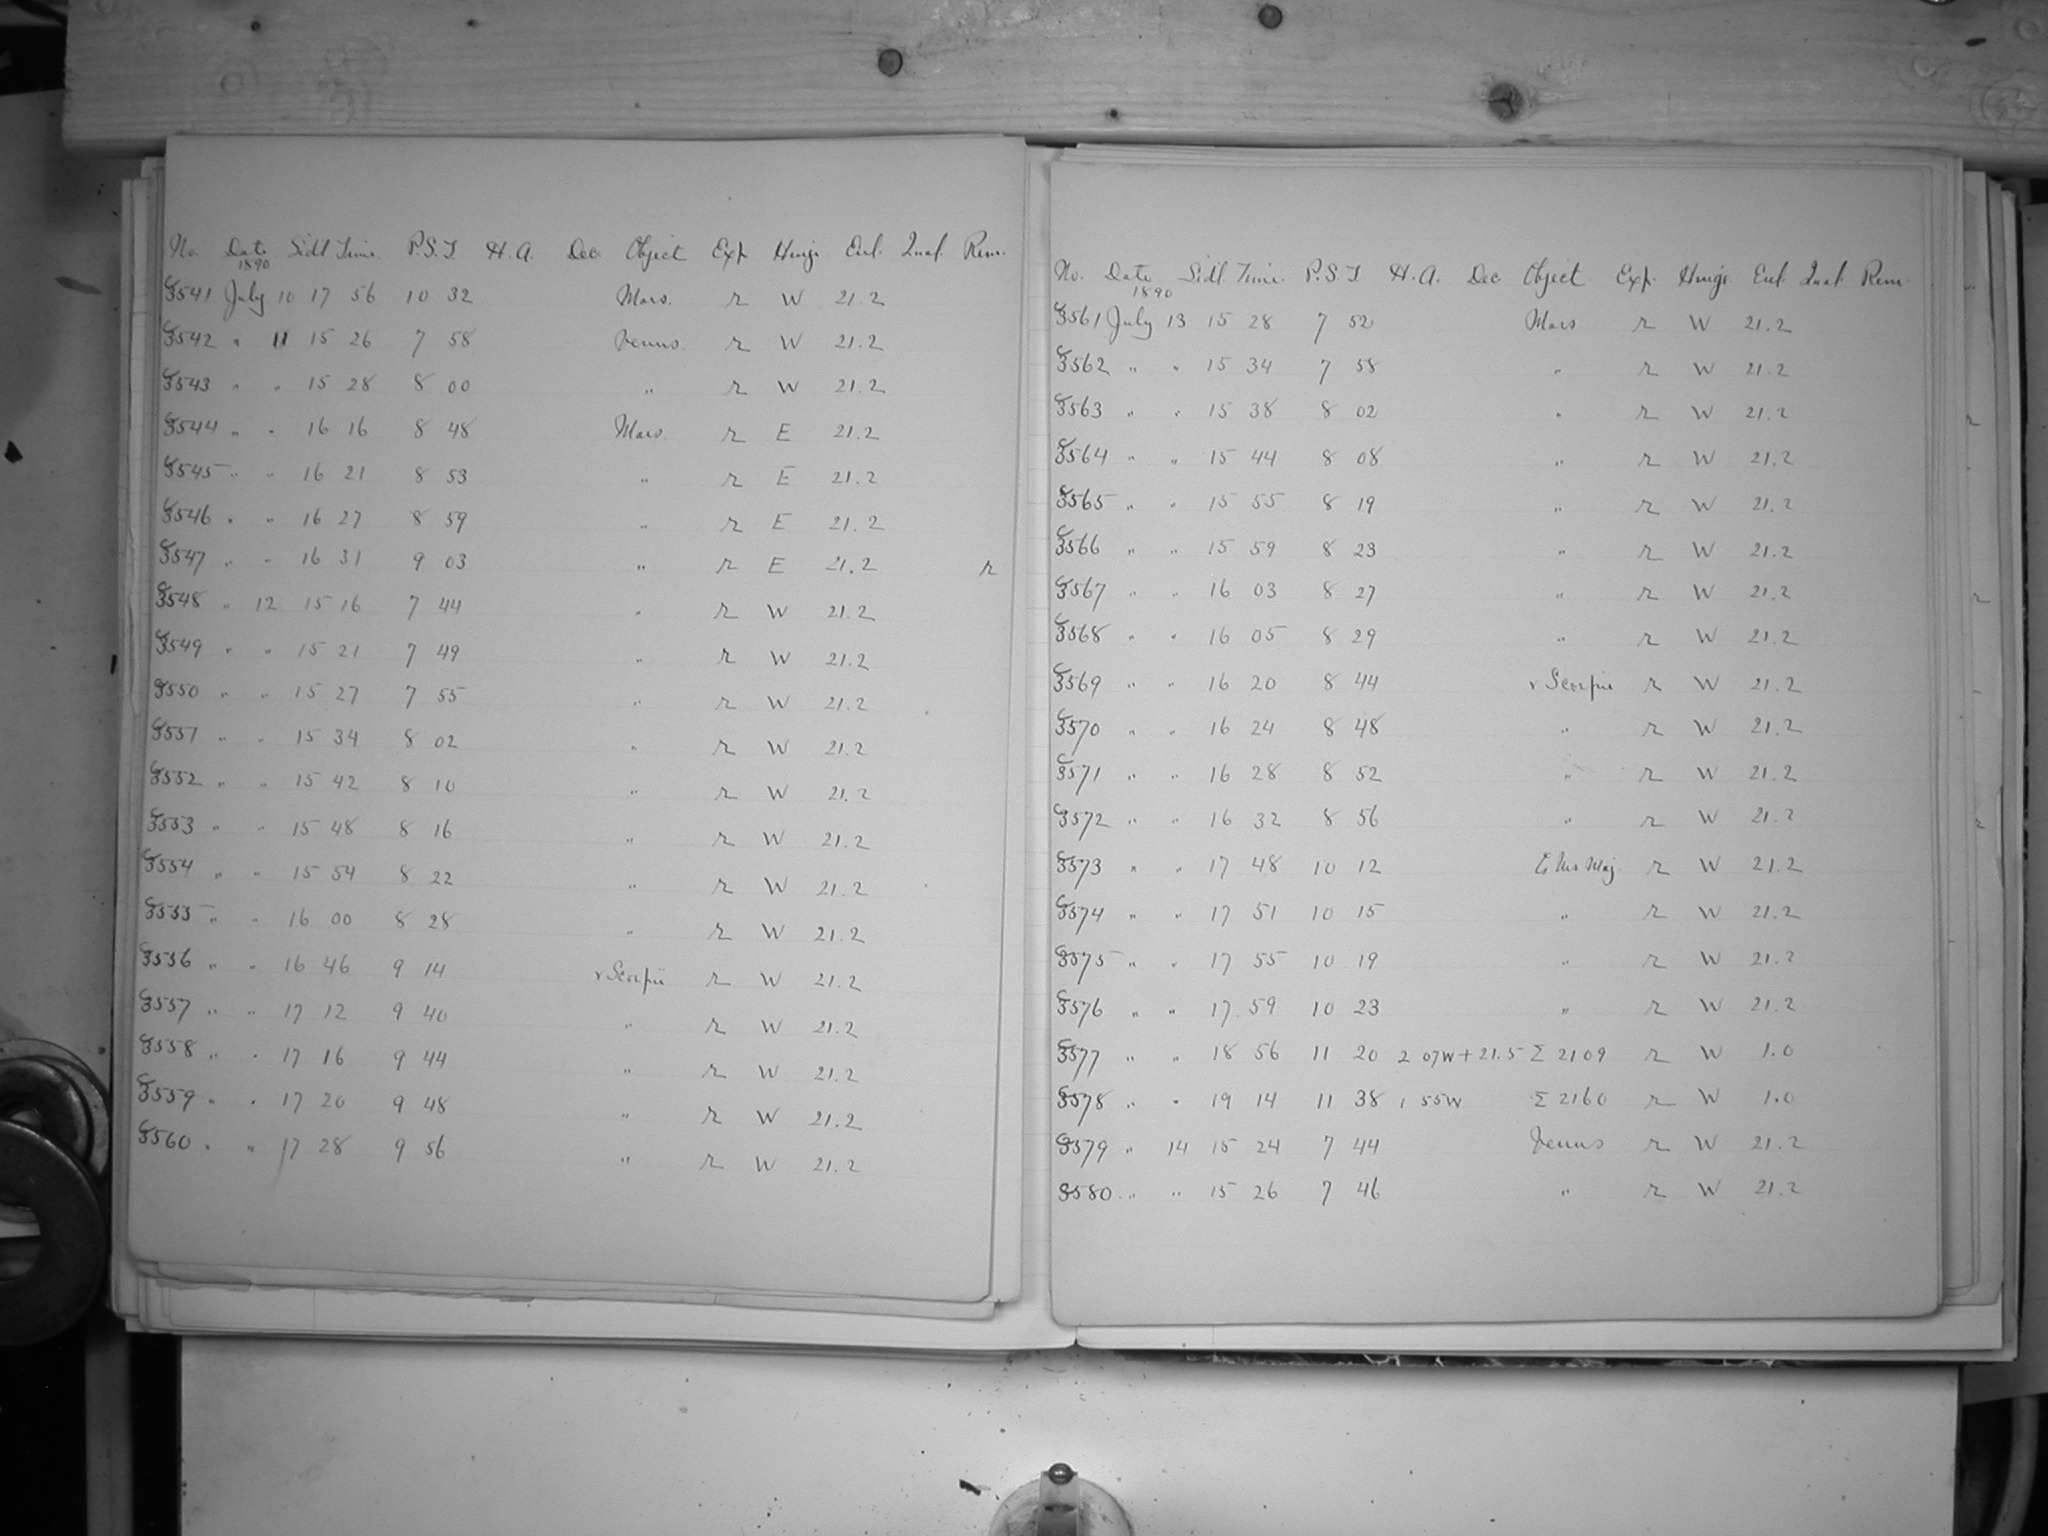 No. Date Sidl. Time. P.S.T H.A. Dec. Object Exp. Hinge. Enl. Qual. Rem.
1890
8541 July 10 17 56 10 32 Mars. r W 21.2
8542 " 11 15 26 7 58 Venus. r W 21.2
8543 " " 15 28 8 00 " r W 21.2
8544 " " 16 16 8 48 Mars. r E 21.2
8545 " " 16 21 8 53 " r E 21.2
8546 " " 16 27 8 59 " r E 21.2
8547 " " 16 31 9 03 " r E 21.2 r
8548 " 12 15 16 7 44 " r W 21.2
8549 " " 15 21 7 49 " r W 21.2
8550 " " 15 27 7 55 " r W 21.2
8551 " " 15 34 8 02 " r W 21.2
8552 " " 15 42 8 10 " r W 21.2
8553 " " 15 48 8 16 " r W 21.2
8554 " " 15 54 8 22 " r W 21.2
8555 " " 16 00 8 28 " r W 21.2
8556 " " 16 46 9 14 ν Scorpii r W 21.2
8557 " " 17 12 9 40 " r W 21.2
8558 " " 17 16 9 44 " r W 21.2
8559 " " 17 20 9 48 " r W 21.2
8560 " " 17 28 9 56 " r W 21.2
No. Date Sidl. Time. P.S.T H.A. Dec Object Exp. Hinge Enl. Qual. Rem.
1890
8561 July 13 15 28 7 52 Mars r W 21.2
8562 " " 15 34 7 58 " r W 21.2
8563 " " 15 38 8 02 " r W 21.2
8564 " " 15 44 8 08 " r W 21.2
8565 " " 15 55 8 19 " r W 21.2
8566 " " 15 59 8 23 " r W 21.2
8567 " " 16 03 8 27 " r W 21.2
8568 " " 16 05 8 29 " r W 21.2
8569 " " 16 20 8 44 ν Scorpii r W 21.2
8570 " " 16 24 8 48 " r W 21.2
8571 " " 16 28 8 52 " r W 21.2
8572 " " 16 32 8 56 " r W 21.2
8573 " " 17 48 10 12 ζ Urs Maj. r W 21.2
8574 " " 17 51 10 15 " r W 21.2
8575 " " 17 55 10 19 " r W 21.2
8576 " " 17 59 10 23 " r W 21.2
8577 " " 18 56 11 20 2 07W +21.5 Σ 2109 r W 1.0
8578 " " 19 14 11 38 1 55W Σ 2160 r W 1.0
8579 " 14 15 24 7 44 Venus r W 21.2
8580 " " 15 26 7 46 " r W 21.2